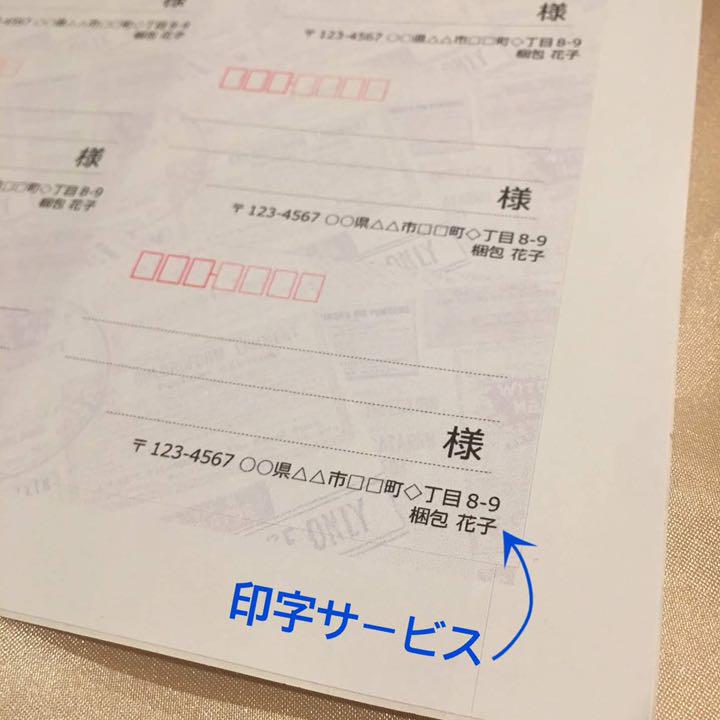 様
様
〒123-4567 〇〇県△△市□□町◇丁目8-9
梱包 花子
梱包 花子
様
様
〒123-4567 〇〇県△△市□□町◇丁目8-9
梱包 花子
□□町◇丁目8-9
梱包 花子
様
〒123-4567 〇〇県△△市□□町◇丁目8-9
梱包 花子
印字サービス